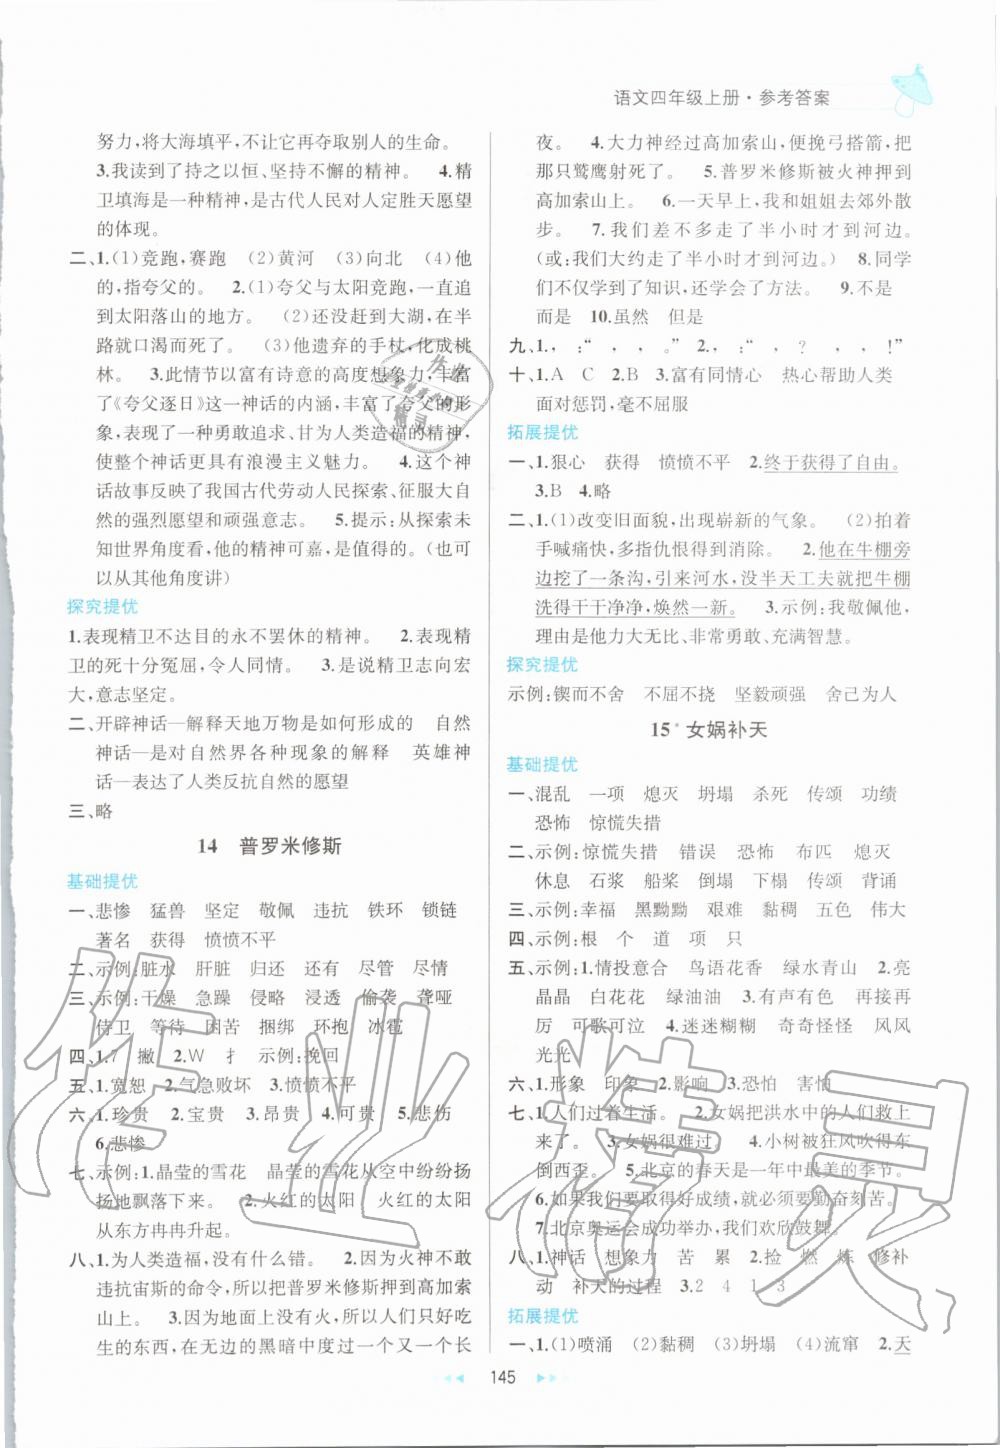 语文四年级上册·参考答案
努力,将大海填平,不让它再夺取别人的生命。
3.我读到了持之以恒、坚持不懈的精神。 4.精
卫填海是一种精神,是古代人民对人定胜天愿望
的体现。
二、1.(1)竞跑,赛跑 (2)黄河 (3)向北 (4)他
的,指夸父的。 2.(1)夸父与太阳竞跑,一直追
到太阳落山的地方。 (2)还没赶到大湖,在半
路就口渴而死。 (3)他遗弃的手杖,化成桃
林。 3.此情节以富有诗意的高度想象力,丰富
了《夸父逐日》这一神话的内涵,丰富了夸父的形
象,表现了一种勇敢追求、甘为人类造福的精神,
使整个神话更具有浪漫主义魅力。 4.这个神
话故事反映了我国古代劳动人民探索、征服大自
然的强烈愿望和顽强意志。 5.提示:从探索未
知世界角度看,他的精神可嘉,是值得的。(也可
以从其他角度讲)
探究提优
1.表现精卫不达目的永不罢休的精神。 2.表现精
卫的死十分冤屈,令人同情。 3.是说精卫志向宏
大,意志坚定。
二、开辟神话—解释天地万物是如何形成的 自然
神话—是对自然界各种现象的解释 英雄神
话—表达了人类反抗自然的愿望
三、略
14 普罗米修斯
基础提优
一、悲惨 猛兽 坚定 敬佩 违抗 铁环 锁链
著名 获得 愤愤不平
二、示例:脏水 肝脏 归还 还有 尽管 尽情
三、示例:干燥 急躁 侵略 浸透 偷袭 聋哑
侍卫 等待 困苦 捆绑 环抱 冰雹
四、1.7 撇 2.W 扌 示例:挽回
五、1.宽恕 2.气急败坏 3.愤愤不平
六、1.珍贵 2.宝贵 3.昂贵 4.可贵 5.悲伤
6.悲惨
七、示例:1.晶莹的雪花 晶莹的雪花从空中纷纷扬
扬地飘落下来。 2.火红的太阳 火红的太阳
从东方冉冉升起。
八、1.为人类造福,没有什么错。 2.因为火神不敢
违抗宙斯的命令,所以把普罗米修斯押到高加索
山上。 3.因为地面上没有火,所以人们只好吃生
的东西,在无边的黑暗中度过一个又一个长
夜。 4.大力神经过高加索山,便挽弓搭箭,把
那只鹫鹰射死了。 5.普罗米修斯被火神押到
高加索山上。 6.一天早上,我和姐姐去郊外散
步。 7.我们差不多走了半小时才到河边。
(或:我们大约走了半小时才到河边。) 8.同学
们不仅学到了知识,还学会了方法。 9.不是
而是 10.虽然 但是
九、1.,:“ , ,。” 2.,:“ , ? , !”
十、1.A C 2.B 3.富有同情心 热心帮助人类
面对惩罚,毫不屈服
拓展提优
一、1.狠心 获得 愤愤不平 2.终于获得了自由。
3.B 4.略
二、1.(1)改变旧面貌,出现崭新的气象。 (2)拍着
手喊痛快,多指仇恨得到消除。 2.他在牛棚旁
边挖了一条沟,引来河水,没半天工夫就把牛棚
洗得干干净净,焕然一新。 3.示例:我敬佩他,
理由是他力大无比、非常勇敢、充满智慧。
探究提优
示例:锲而不舍 不屈不挠 坚毅顽强 舍己为人
15* 女娲补天
基础提优
一、混乱 一项 熄灭 坍塌 杀死 传颂 功绩
恐怖 惊慌失措
二、示例:惊慌失措 错误 恐怖 布匹 熄灭
休息 石浆 船桨 倒塌 下榻 传颂 背诵
三、示例:幸福 黑黝黝 艰难 黏稠 五色 伟大
四、示例:根 个 道 项 只
五、示例:1.情投意合 鸟语花香 绿水青山 2.亮
晶晶 白花花 绿油油 3.有声有色 再接再
厉 可歌可泣 4.迷迷糊糊 奇奇怪怪 风风
光光
六、1.形象 印象 2.影响 3.恐怕 害怕
七、1.人们过着生活。 2.女娲把洪水中的人们救上
来了。 3.女娲很难过。 4.小树被狂风吹得东
倒西歪。 5.北京的春天是一年中最美的季节。
6.如果我们要取得好成绩,就必须要勤奋刻苦。
7.北京奥运会成功举办,我们欢欣鼓舞。
八、1.神话 想象力 苦 累 2.捡 燃 炼 修补
动 补天的过程 3.2 4 1 3
拓展提优
一、1.(1)喷涌 (2)黏稠 (3)坍塌 (4)流窜 2.天
145
作业精灵